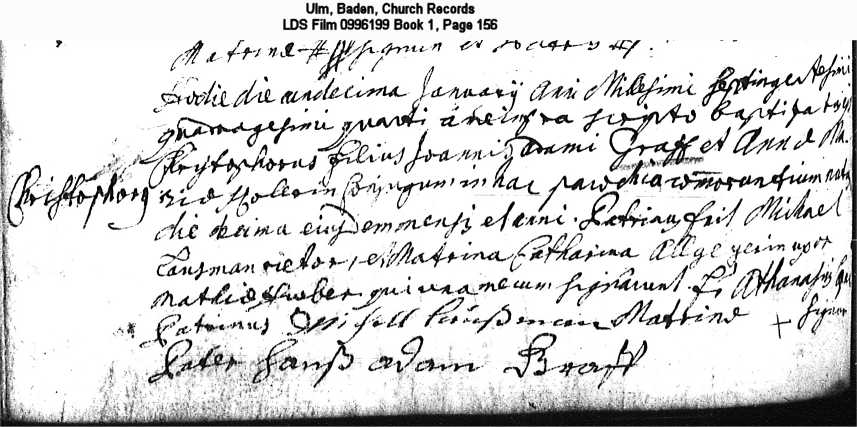 Ulm, Baden, Church Records
LDS Film 0996199 Book 1, Page 156
Matrinæ signum et
Hodie die undecima January Anni Milesimi septingentesimi
quadragesimi quarti à me infra scripto baptizatus est
Christophorus
Chrystophorus filius Joannis adami Graff et Annæ Ma
riæ conjugum in hac parochia commorantium natus
die decima ejusdem mensis et anni. Patrinus fuit Michael
et Matrina Catharina uxor
Mathiæ Huber qui una mecum signarunt Fr Athanasius
Patrinus Matrinæ + signum
Pater Hanß adam Graff